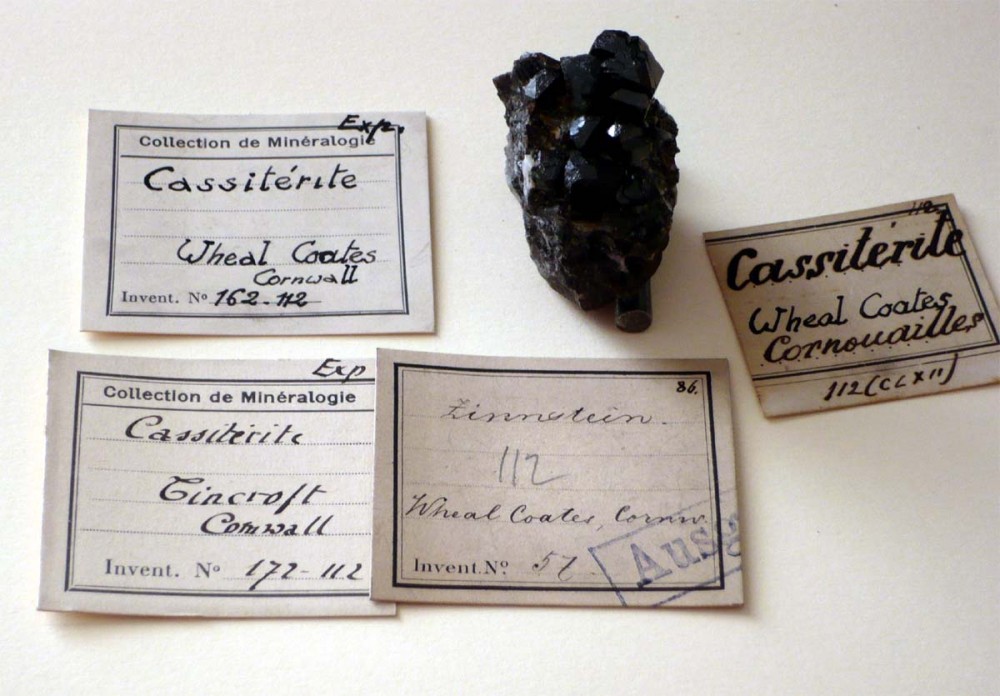 Exp.
Collection de Minéralogie
Cassitérite
Wheal Coates
Cornwall
Invent. No 162-112
Exp
Collection de Minéralogie
Cassitérite
Tincroft
Cornwall
Invent. No 172-112
86.
Zinnstein.
112
Wheal Coates, Cornw.
Invent. No. 57
Ausg
112.
Cassitérite
Wheal Coates
Cornouailles
112 (CLXII)